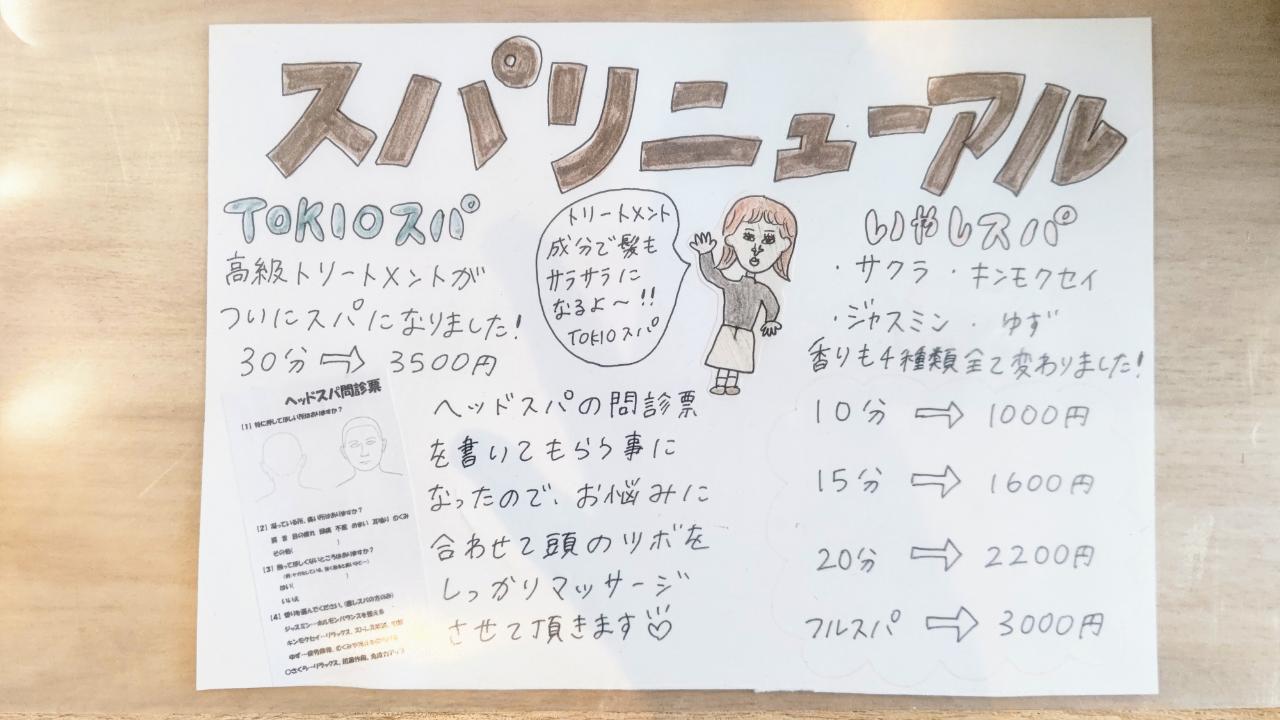 スパリニューアル
TOKIOスパ
高級トリートメントが
ついにスパになりました!
30分⇨3500円
トリートメント
成分で髪も
サラサラに
なるよ〜!!
TOKIOスパ
いやしスパ
・サクラ・キンモクセイ
・ジャスミン・ゆず
香りも4種類全て変わりました!
10分⇨1000円
15分⇨1600円
20分⇨2200円
フルスパ⇨3000円
ヘッドスパの問診票
を書いてもらう事に
なったので、お悩みに
合わせて頭のツボを
しっかりマッサージ
させて頂きます♡
ヘッドスパ問診票
[1] 特に押してほしい所はありますか?
[2] 凝っている所、痛い所はありますか?
肩 首 目の疲れ 頭痛 不眠 めまい 耳鳴り むくみ
その他( )
[3] 触ってほしくないところはありますか?
はい( )
いいえ
[4] 香りを選んでください。(癒しスパの方のみ)
ジャスミン…ホルモンバランスを整える
キンモクセイ…リラックス、ストレス
ゆず…疲労回復、
さくら…リラックス、